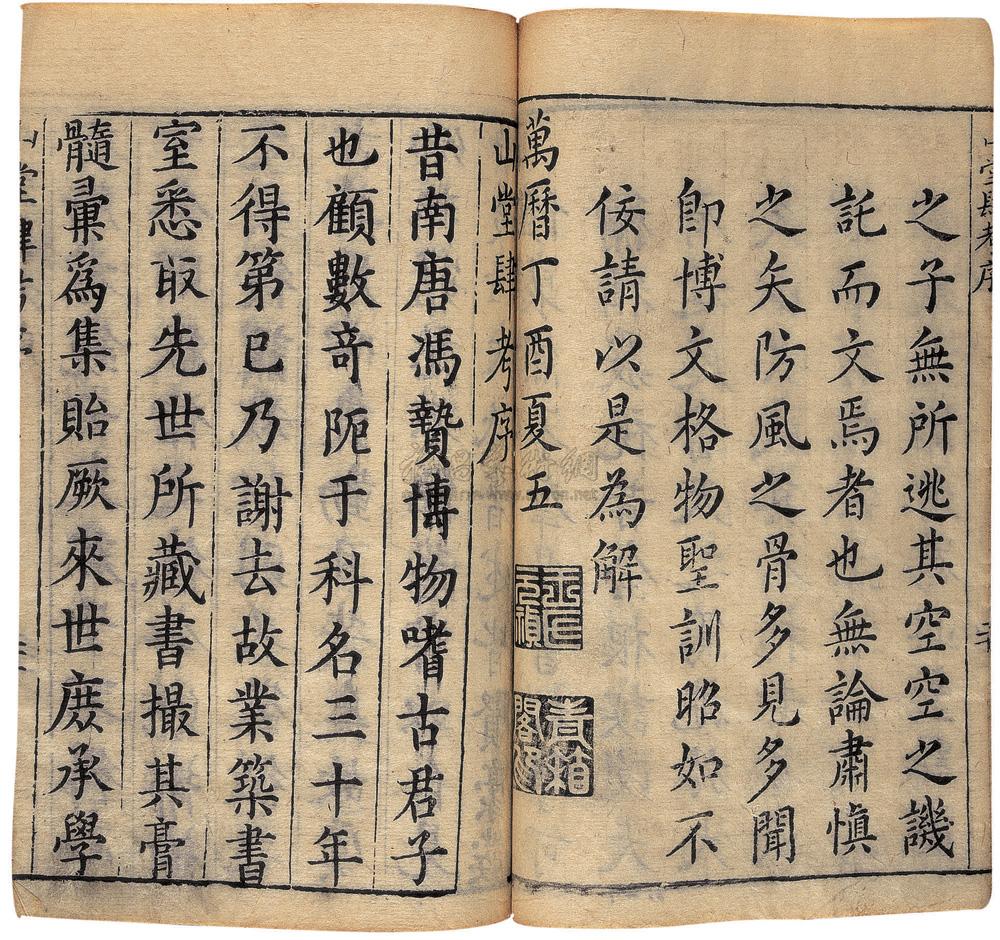 山堂肆考序
之子無所逃其空空之譏
託而文焉者也無論肅慎
之矢防風之骨多見多聞
卽博文格物聖訓昭如不
佞請以是為解
萬曆丁酉夏五
山堂肆考序
昔南唐馮贄博物嗜古君子
也顧數奇阨于科名三十年
不得第已乃謝去故業築書
室悉取先世所藏書撮其膏
髓彚爲集貽厥來世庶承學